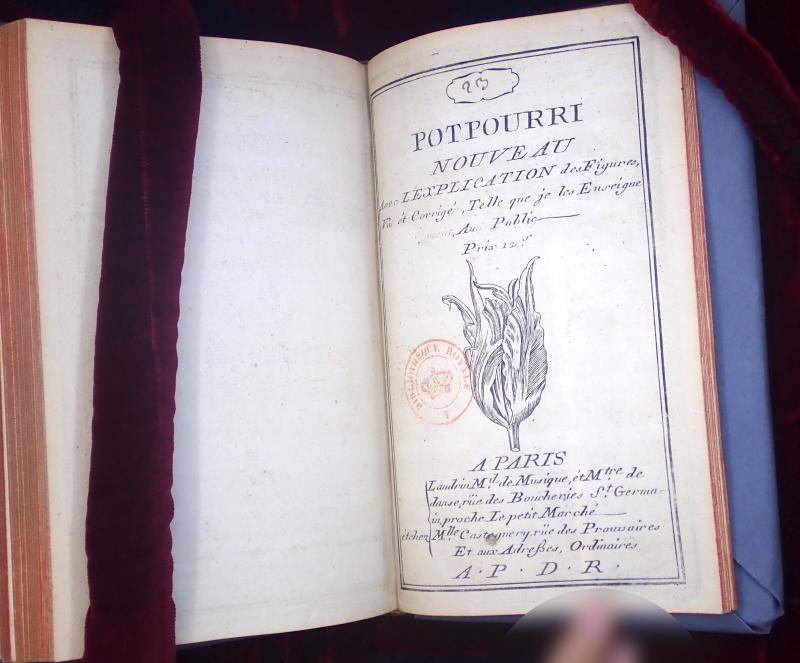 23
POTPOURRI
NOUVEAU
Avec L'EXPLICATION des Figures,
Vu et Corrigé, Telle que je les Enseigne
Au Public
Prix 12.s
BIBLIOTHEQUE ROYALE
A PARIS
Landrin M.d de Musique, ét M.tre de
danse, rüe des Boucheries S.t Germa-
in, proche Le petit Marché
ét chez M.lle Castagnery, rüe des Prouvaires
Et aux Adreßes, Ordinaires
A . P . D . R .